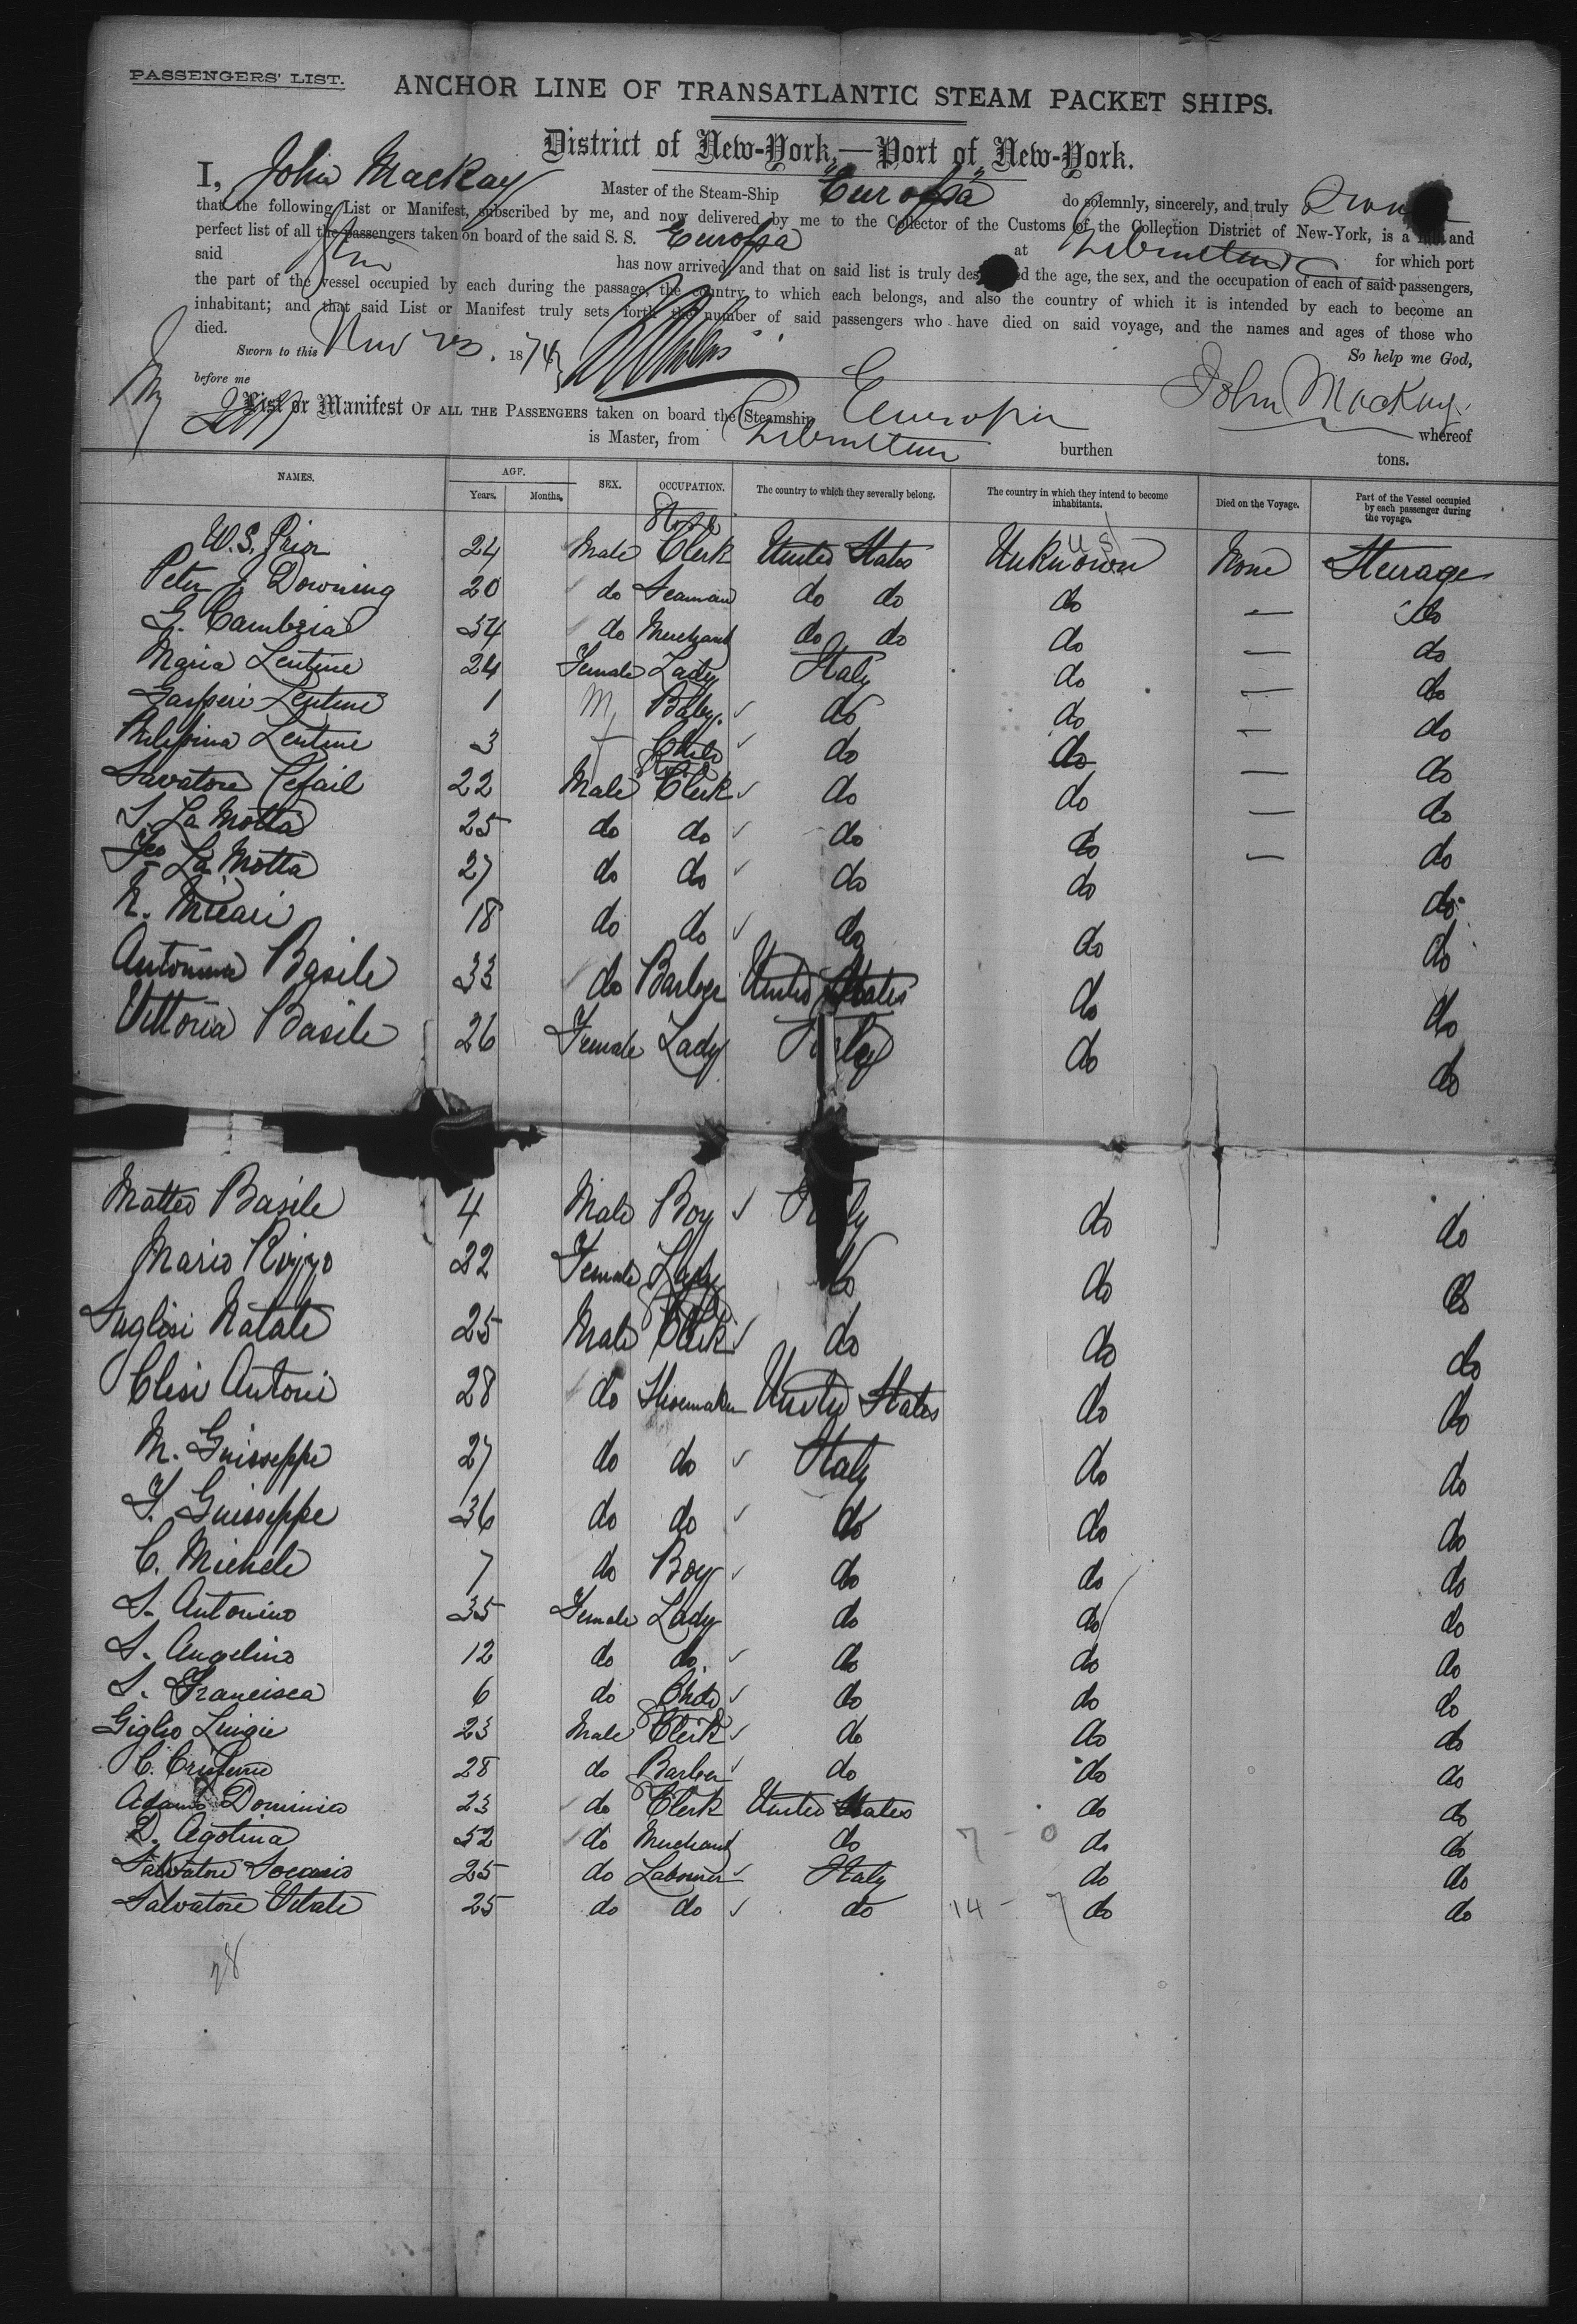 PASSENGERS' LIST.
ANCHOR LINE OF TRANSATLANTIC STEAM PACKET SHIPS.
District of New-York,—Port of New-York.
I, John Mackay Master of the Steam-Ship "Europa" do solemnly, sincerely, and truly
that the following List or Manifest, subscribed by me, and now delivered by me to the Collector of the Customs of the Collection District of New-York, is a and
perfect list of all the passengers taken on board of the said S. S. Europa at for which port
said has now arrived, and that on said list is truly the age, the sex, and the occupation of each of said passengers,
the part of the vessel occupied by each during the passage, the country to which each belongs, and also the country of which it is intended by each to become an
inhabitant; and that said List or Manifest truly sets forth the number of said passengers who have died on said voyage, and the names and ages of those who
died.
So help me God,
Sworn to this Nov 23. 1874
before me
John Mackay.
List or Manifest OF ALL THE PASSENGERS taken on board the Steamship Europa whereof
is Master, from burthen tons.
NAMES. AGE. Years. Months. SEX. OCCUPATION. The country to which they severally belong. The country in which they intend to become inhabitants. Died on the Voyage. Part of the Vessel occupied by each passenger during the voyage.
W. S. Prior 24 Male Clerk United States Unknown U S None Steerage
Peter J. Downing 20 do Seaman do do do — do
G. Cambria 34 do Merchant do do do — do
Maria Lentine 24 Female Lady Italy do — do
Gasperi Lentine 1 M Baby. do do — do
Philipina Lentine 3 f Child do do — do
Savatore Cefail 22 Male Clerk do do — do
S. La Motta 25 do do do do — do
Geo La Motta 27 do do do do do
N. Micari 18 do do do do do
Antonina Basile 33 do Barber United States do do
Vittoria Basile 26 Female Lady Italy do do
Matteo Basile 4 Male Boy Italy do do
Maria Rizzo 22 Female Lady do do do
Natale 25 Male Clerk do do do
Clesi Antoni 28 do Shoemaker United States do do
M. Guisseppe 27 do do Italy do do
F. Guisseppe 36 do do do do do
C. Michele 7 do Boy do do do
S. Antonino 35 Female Lady do do do
S. Angelino 12 do do. do do do
S. Francisca 6 do Child do do do
Giglio Luigie 23 Male Clerk do do do
C. 28 do Barber do do do
Adams Dominico 23 do Clerk United States do do
D. Agotina 52 do Merchant do 7 - 0 do do
Salvatore 25 do Labourer Italy do do
Salvatore Vitate 25 do do do 14 - 7 do do
28